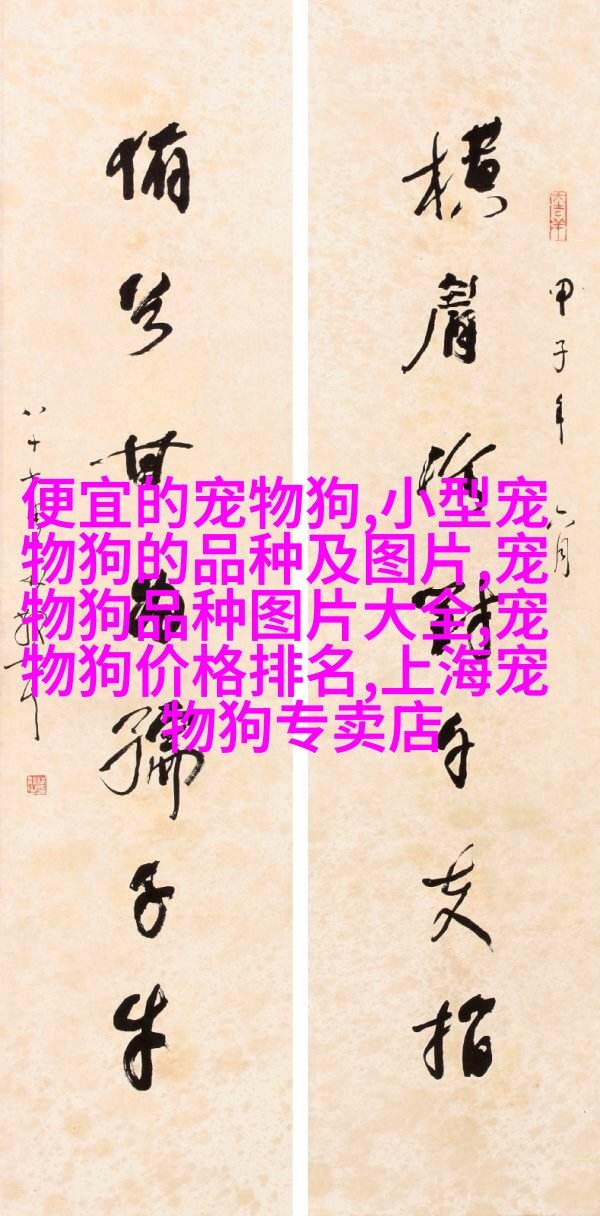 横眉冷對千夫指
甲子年六月
俯首甘為孺子牛
便宜的宠物狗,小型宠
物狗的品种及图片,宠
物狗品种图片大全,宠
物狗价格排名,上海宠
物狗专卖店